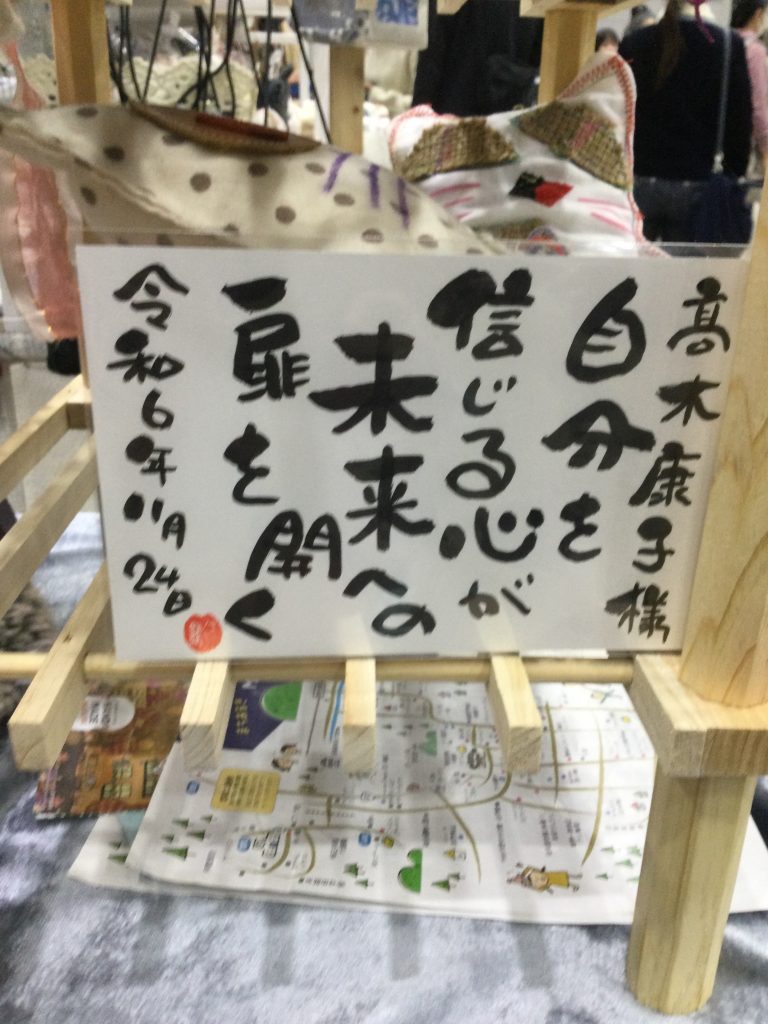 髙木康子様
自分を
信じる心が
未来への
扉を
開く
令和6年11月24日